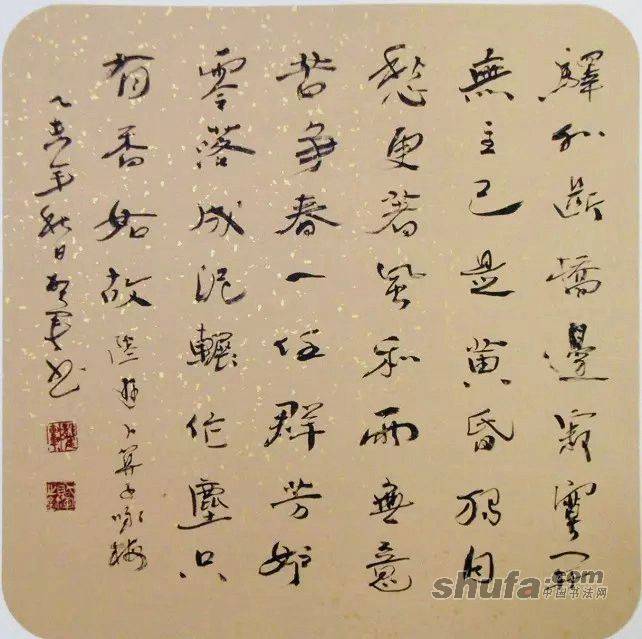 驛外斷橋邊寂寞開
無主已是黃昏獨自
愁更著風和雨無意
苦爭春一任群芳妒
零落成泥輾作塵只
有香如故陸游卜算子詠梅
乙年秋日書
shufa.com
中国书法网